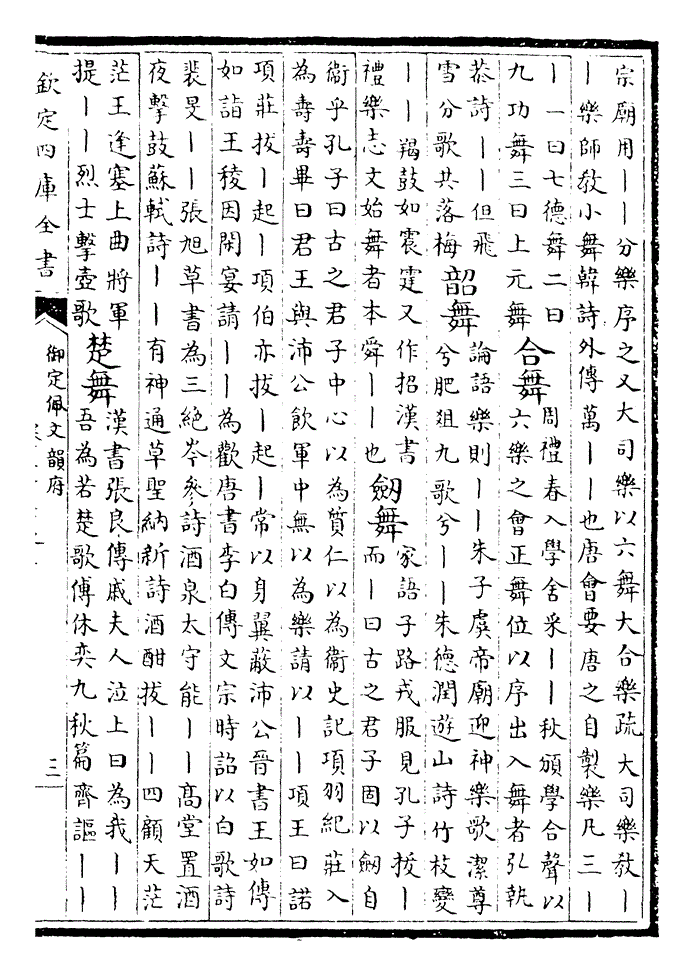 宗廟用丨丨分樂序之又大司樂以六舞大合樂疏大司樂教丨
丨樂師教小舞韓詩外傳萬丨丨也唐會要唐之自製樂凡三丨
丨一曰七德舞二曰
九功舞三曰上元舞
合舞
周禮春入學舍采丨丨秋頒學合聲以
六樂之會正舞位以序出入舞者弘執
恭詩丨丨但飛
雪分歌共落梅
韶舞
論語樂則丨丨朱子虞帝廟迎神樂歌潔尊
兮肥俎九歌兮丨丨朱德潤遊山詩竹枝變
丨丨羯鼓如震霆又作招漢書
禮樂志文始舞者本舜丨丨也
劒舞
家語子路戎服見孔子拔丨
而丨曰古之君子固以劒自
衞乎孔子曰古之君子中心以為質仁以為衞史記項羽紀莊入
為壽壽畢曰君王與沛公飲軍中無以為樂請以丨丨項王曰諾
項莊拔丨起丨項伯亦拔丨起丨常以身翼蔽沛公晉書王如傳
如詣王稜因閑宴請丨丨為歡唐書李白傳文宗時詔以白歌詩
裴旻丨丨張旭草書為三絶岑參詩酒泉太守能丨丨髙堂置酒
夜擊鼓蘇軾詩丨丨有神通草聖納新詩酒酣拔丨丨四顧天茫
茫王逢塞上曲將軍
提丨丨烈士擊壺歌
楚舞
漢書張良傳戚夫人泣上曰為我丨丨
吾為若楚歌傅休奕九秋篇齊謳丨丨
欽定四庫全書
御定佩文韻府
三